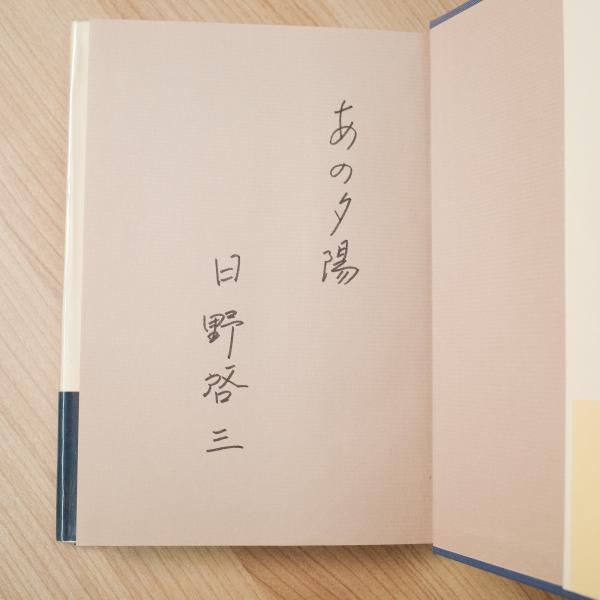 あの夕陽
日野啓三